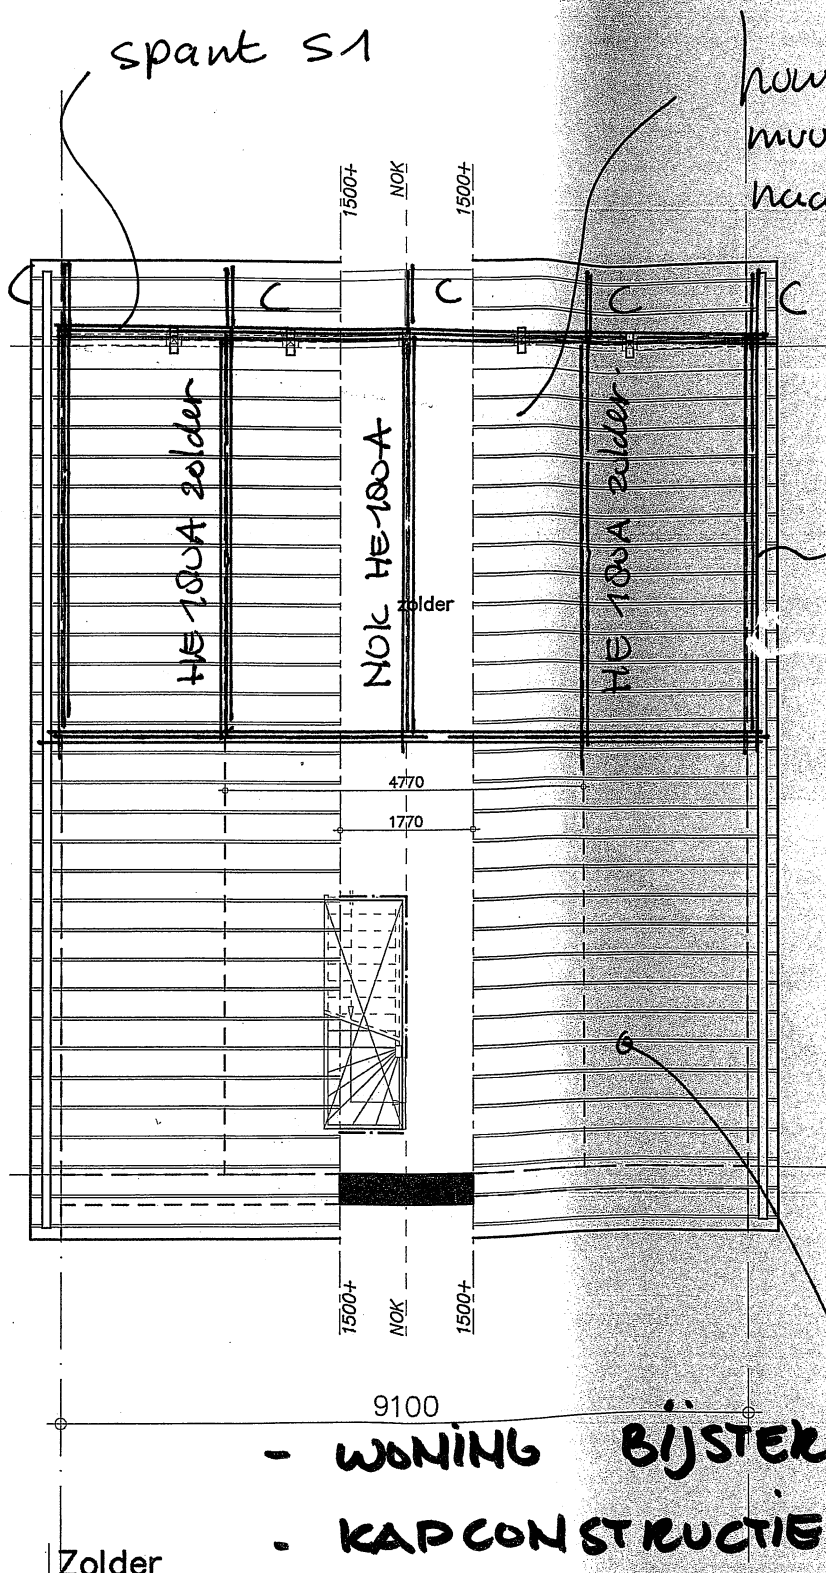 spant S1
hou
muu
naa
1500+
NOK
1500+
C
C
C
C
C
HE 180A zolder
NOK HE 180A
HE 180A zolder
zolder
4770
1770
1500+
NOK
1500+
9100
- WONING BIJSTER
- KAPCONSTRUCTIE
Zolder